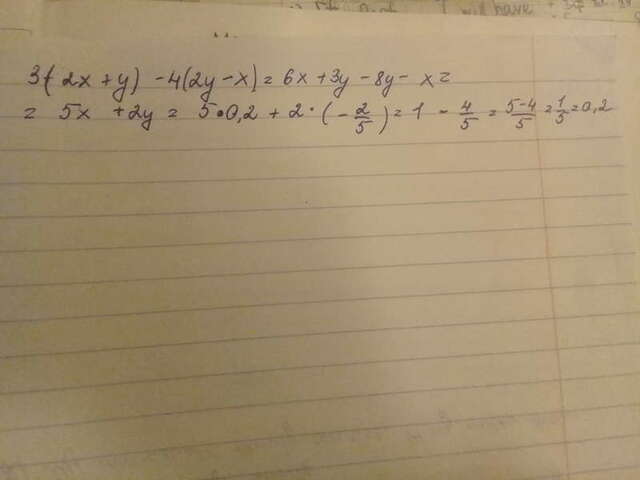 I will have
3(2x+y) -4(2y-x)= 6x+3y-8y- x=
= 5x +2y = 5•0,2 + 2·(-2/5)= 1 - 4/5 = 5-4/5 = 1/5 = 0,2